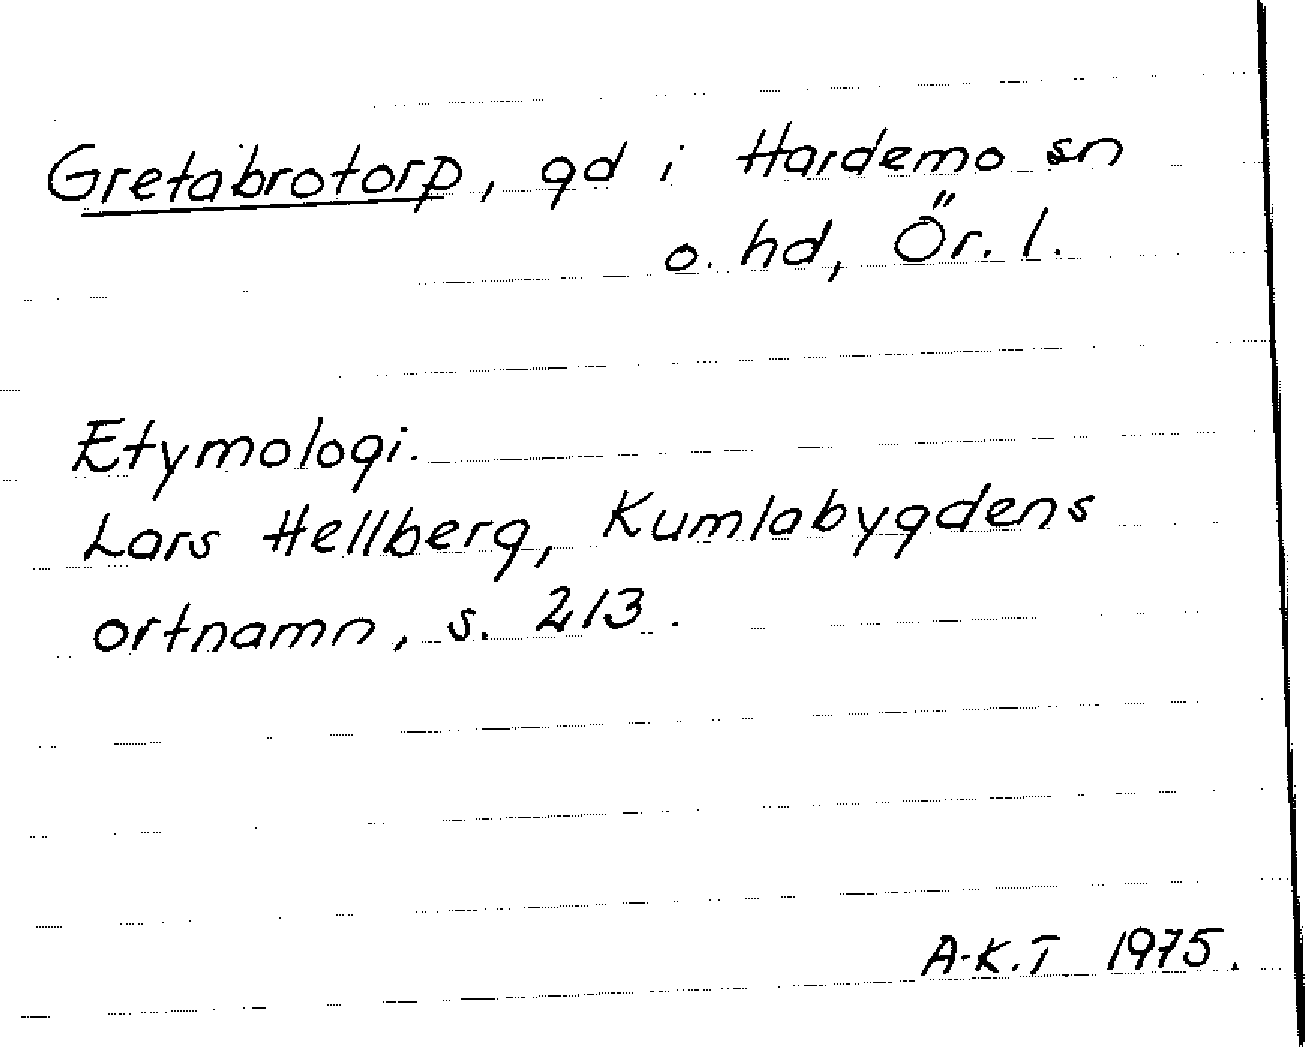 Gretabrotorp, gd i Hardemo sn
o. hd, Ör. l.
Etymologi.
Lars Hellberg, Kumlabygdens
ortnamn, s. 213.
A-K.T 1975.